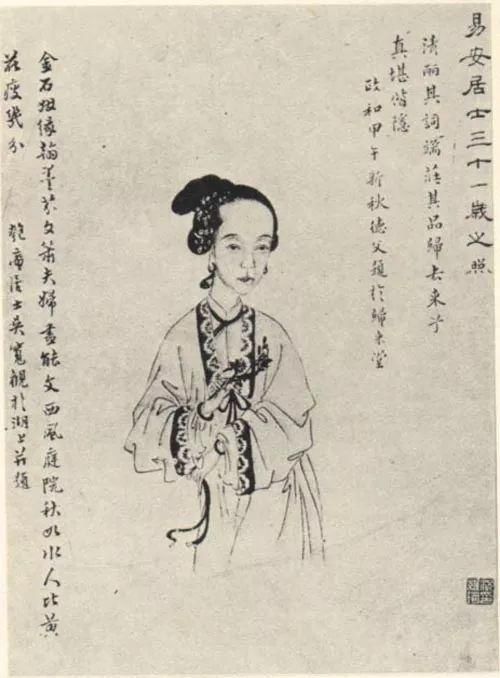 易安居士三十一歲之照
清麗其詞端莊其品歸去來兮
真堪偕隱
政和甲午新秋德父題於歸來堂
金石姻緣翰墨芬文簫夫婦盡能文西風庭院秋如水人比黃
花瘦幾分
匏菴居士吳寬觀於湖上並題